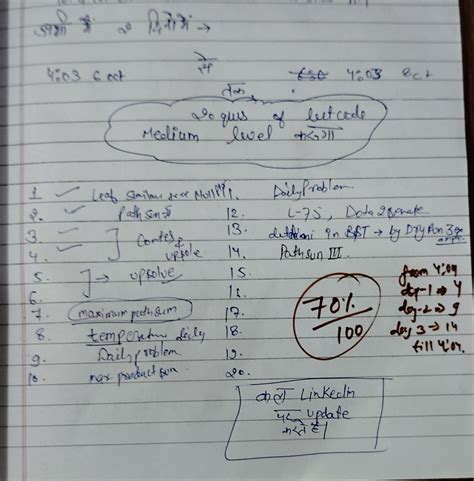 अभी से 2 दिनों में →
से
4:03 6 oct 4:03 8 oct
तक
20 ques of leetcode
Medium level करूंगा
1. Leaf similar tree 11. Daily Problem
2. Path sum 12. L-75,
3. 13. deletion in BST → by
4. Contest upsolve 14. Path sum III.
5. 15.
6. upsolve 16.
7. maximum path sum 17.
8. temperature daily 18.
9. Daily problem 19.
10. max product 20.
70%
100
from 4:04
day-1 → 4
day-2 → 9
day 3 → 14
till 4:04.
कल Linkedin
पर update
करते है।